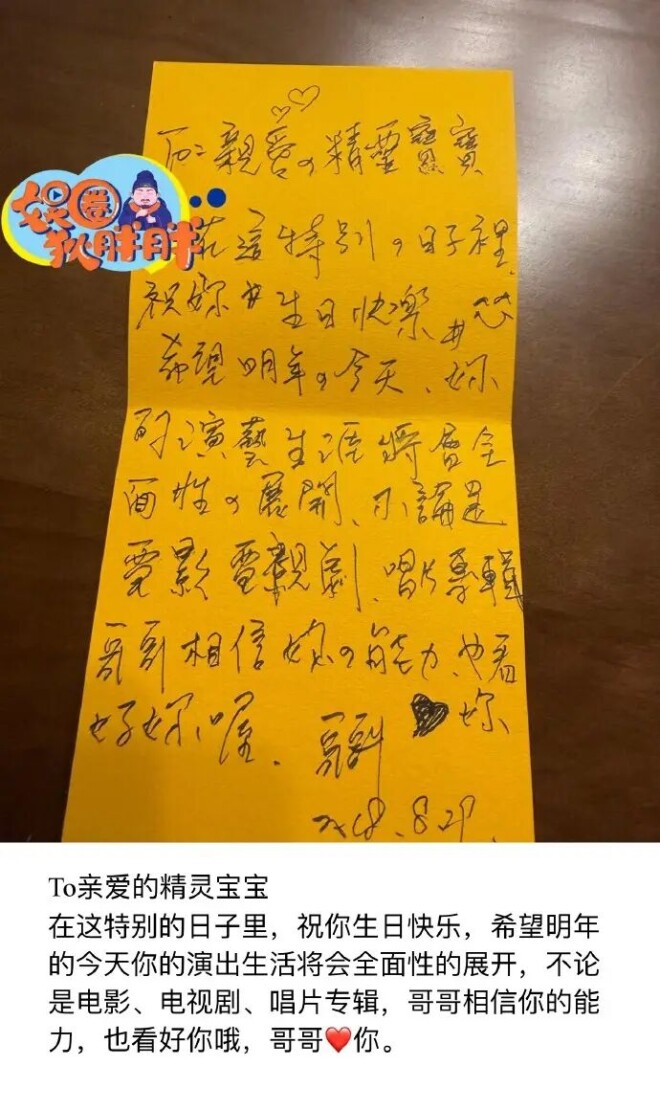 To:親愛の精靈寶寶
娱圈
狄胖胖
在這特別の日子裡
祝妳#生日快樂#
希望明年の今天、妳
的演藝生涯將會全
面性の展開、不論是
電影電視劇、唱片專輯
哥哥相信妳の能力、也看
好妳、喔、哥哥♥妳
2018.8.29.
To亲爱的精灵宝宝
在这特别的日子里，祝你生日快乐，希望明年
的今天你的演出生活将会全面性的展开，不论
是电影、电视剧、唱片专辑，哥哥相信你的能
力，也看好你哦，哥哥❤️你。